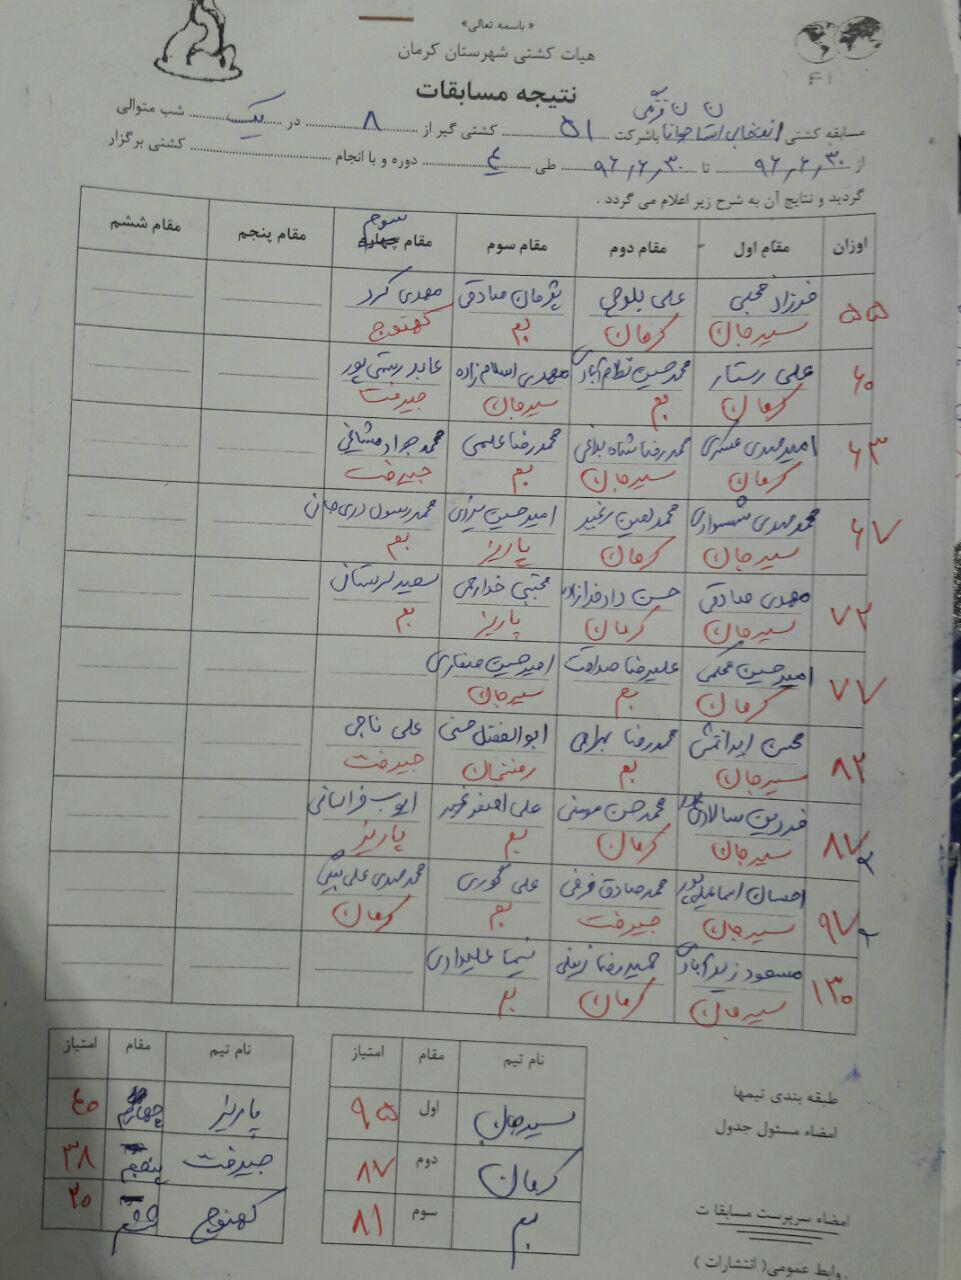 « باسمه تعالی »
هیات کشتی شهرستان کرمان
نتیجه مسابقات
مسابقه کشتی انتخابی استا باشرکت ۵۱ کشتی گیر از ۸ در یک شب متوالی
از ۹۶/۶/۳۰ تا ۹۶/۶/۳۰ طی ۴ دوره و با انجام کشتی برگزار
گردید و نتایج آن به شرح زیر اعلام می گردد .
اوزان مقام اول مقام دوم مقام سوم مقام چهارم سوم مقام پنجم مقام ششم
۵۵ فرزاد محبی علی بلوچی پژمان صادقی مهدی کرد
سیرجان کرمان بم کهنوج
۶۰ علی رستار محمدحسین نظام آبادی مهدی اسلام زاده عابد رستی پور
کرمان بم سیرجان جیرفت
۶۳ امیرمهدی عسکری محمدرضا شاه بداغی محمدرضا علمی محمدجواد مشایخی
کرمان سیرجان بم جیرفت
۶۷ محمدمهدی شهسواری محمدامین امیرحسین محمدرسول
سیرجان کرمان پاریز بم
۷۲ مهدی صادقی حسن دادخدازاده مجتبی سعید لرستانی
سیرجان کرمان پاریز بم
۷۷ امیرحسین محکمی علیرضا صداقت امیرحسین صفاری
کرمان بم سیرجان
۸۲ محسن محمدرضا بهرامی ابوالفضل حسنی علی ناجی
سیرجان بم رفسنجان جیرفت
۸۷ فردین سالاری محمدحسن مومنی علی اصغر ایوب
سیرجان کرمان بم پاریز
۹۷ احسان اسماعیل پور محمدصادق علی گوری محمدمهدی علی بیگی
سیرجان جیرفت بم کرمان
۱۳۰ مسعود زیدآبادی حمیدرضا زینلی نیما علیدادی
سیرجان کرمان بم
طبقه بندی تیمها
امضاء مسئول جدول
نام تیم مقام امتیاز
سیرجان اول ۹۵
کرمان دوم ۸۷
بم سوم ۸۱
نام تیم مقام امتیاز
پاریز چهارم ۴۰
جیرفت پنجم ۳۸
کهنوج ششم ۲۰
امضاء سرپرست مسابقات
روابط عمومی( انتشارات )